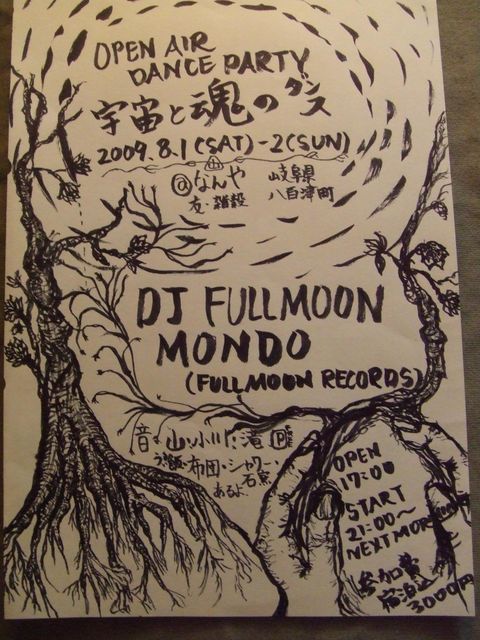 OPEN AIR
DANCE PARTY
宇宙と魂のダンス
2009.8.1(SAT)-2(SUN)
@なんや 岐阜県
友・雑穀 八百津町
DJ FULLMOON
MONDO
(FULLMOON RECORDS)
音・山・小川・滝 P
布団・シャワー・
あるよ 石窯
OPEN
17:00
START
21:00〜
NEXT MORNING
参加費
宿泊込
3000円